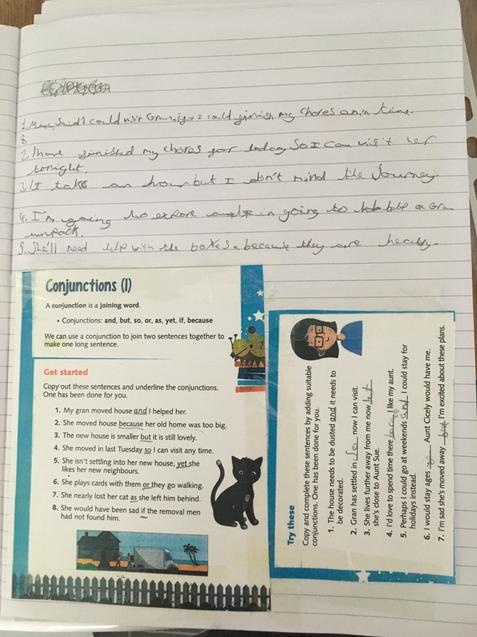 1. Mum said I could visit Gran if I could finish my chores in time.
2. I have finished my chores for today So I can visit her
tonight.
3. It takes an hour but I don't mind the Journey.
4. I'm going to explore and I'm going to help Gran
unpack.
5. She'll need help with the boxes because they are heavy.
Conjunctions (1)
A conjunction is a joining word.
• Conjunctions: and, but, so, or, as, yet, if, because
We can use a conjunction to join two sentences together to
make one long sentence.
Get started
Copy out these sentences and underline the conjunctions.
One has been done for you.
1. My gran moved house and I helped her.
2. She moved house because her old home was too big.
3. The new house is smaller but it is still lovely.
4. She moved in last Tuesday so I can visit any time.
5. She isn't settling into her new house, yet she
likes her new neighbours.
6. She plays cards with them or they go walking.
7. She nearly lost her cat as she left him behind.
8. She would have been sad if the removal men
had not found him.
Try these
Copy and complete these sentences by adding suitable
conjunctions. One has been done for you.
1. The house needs to be dusted and it needs to
be decorated.
2. Gran has settled in so now I can visit.
3. She lives further away from me now but
she's close to Aunt Sue.
4. I'd love to spend time there I like my aunt.
5. Perhaps I could go at weekends and I could stay for
holidays instead.
6. I would stay ages Aunt Cicely would have me.
7. I'm sad she's moved away but I'm excited about these plans.